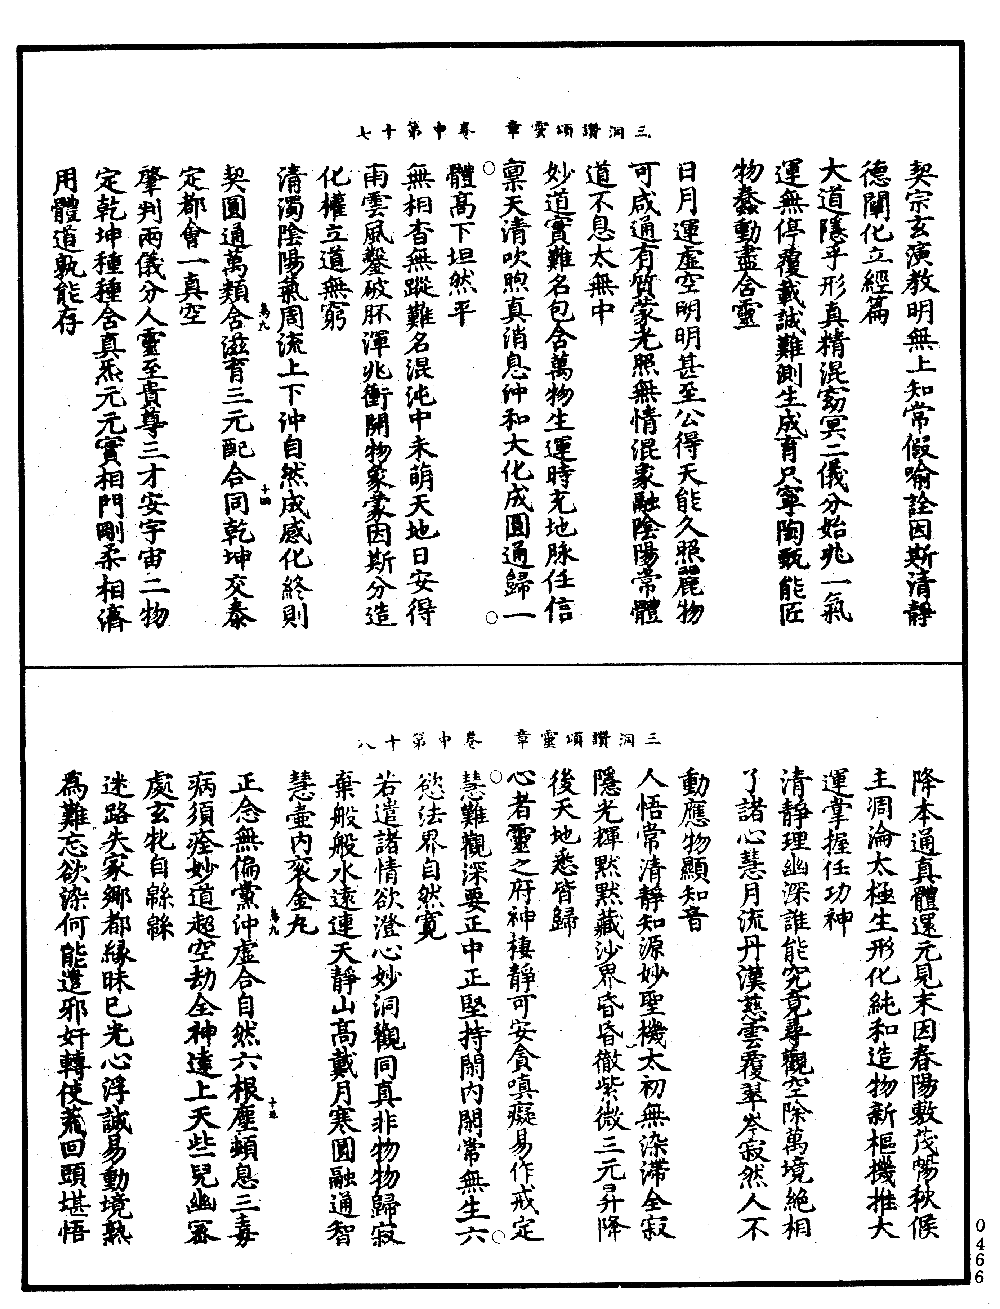 三洞讚頌靈章　卷中第十七
契宗玄演教明無上知常假喻詮因斯清靜
德闡化立經篇
大道隱乎形真精混窈冥二儀分始兆一氣
運無停覆載誠難測生成育只寧陶甄能匠
物蠢動盡含靈
日月運虛空明明甚至公得天能久照麗物
可咸通有質蒙光照無情混象融陰陽常體
道不息太無中
妙道實難名包含萬物生運時充地脉任信
稟天清吹煦真消息沖和大化成圓通歸一
體高下坦然平
無相杳無蹤難名混沌中未萌天地日安得
雨雲風鑿破胚渾兆衝開物象蒙因斯分造
化權立道無窮
清濁陰陽氣周流上下沖自然成感化終則
契圓通萬類含滋育三元配合同乾坤交泰
定都會一真空
肇判兩儀分人靈至貴尊三才安宇宙二物
定乾坤種種含真炁元元實相門剛柔相濟
用體道孰能存
三洞讚頌靈章　卷中第十八
降本通真體還元見末因春陽敷茂暢秋候
主凋淪太極生形化純和造物新樞機推大
運掌握任功神
清靜理幽深誰能究竟尋觀空除萬境絕相
了諸心慧月流丹漢慈雲覆翠岑寂然人不
動應物顯知音
人悟常清靜知源妙聖機太初無染滯全寂
隱光輝默默藏沙界昏昏徹紫微三元昇降
後天地悉皆歸
心者靈之府神棲靜可安貪嗔癡易作戒定
慧難觀深要正中正堅持閑內閑常無生六
慾法界自然寬
若遣諸情欲澄心妙洞觀同真非物物歸寂
棄般般水遠連天靜山高戴月寒圓融通智
慧壺內衮金丸
正念無偏黨沖虛合自然六根塵頓息三毒
病須痊妙道超空劫全神達上天些兒幽密
處玄牝自緜緜
迷路失家鄉都緣昧已光心浮誠易動境熟
為難忘欲染何能遣邪奸轉使荒回頭堪悟
0466